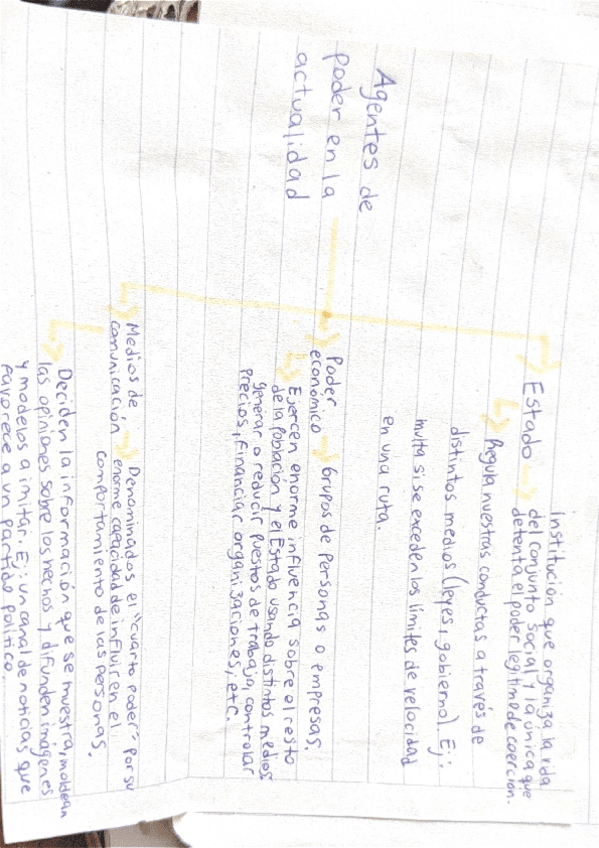 Agentes de
poder en la
actualidad
Estado
institución que organiza la vida
del conjunto social y la única que
detenta el poder legítimo de coerción.
Regula nuestras conductas a través de
distintos medios (leyes, gobierno). Ej:
multa si se exceden los límites de velocidad
en una ruta.
Poder
económico
Grupos de personas o empresas.
Ejercen enorme influencia sobre el resto
de la población y el Estado usando distintos medios
generar o reducir puestos de trabajo, controlar
precios, financiar organizaciones, etc.
Medios de
comunicación
Denominados el "cuarto poder" por su
enorme capacidad de influir en el
comportamiento de las personas.
Deciden la información que se muestra, moldean
las opiniones sobre los hechos y difunden imágenes
y modelos a imitar. Ej: un canal de noticias que
favorece a un partido político.